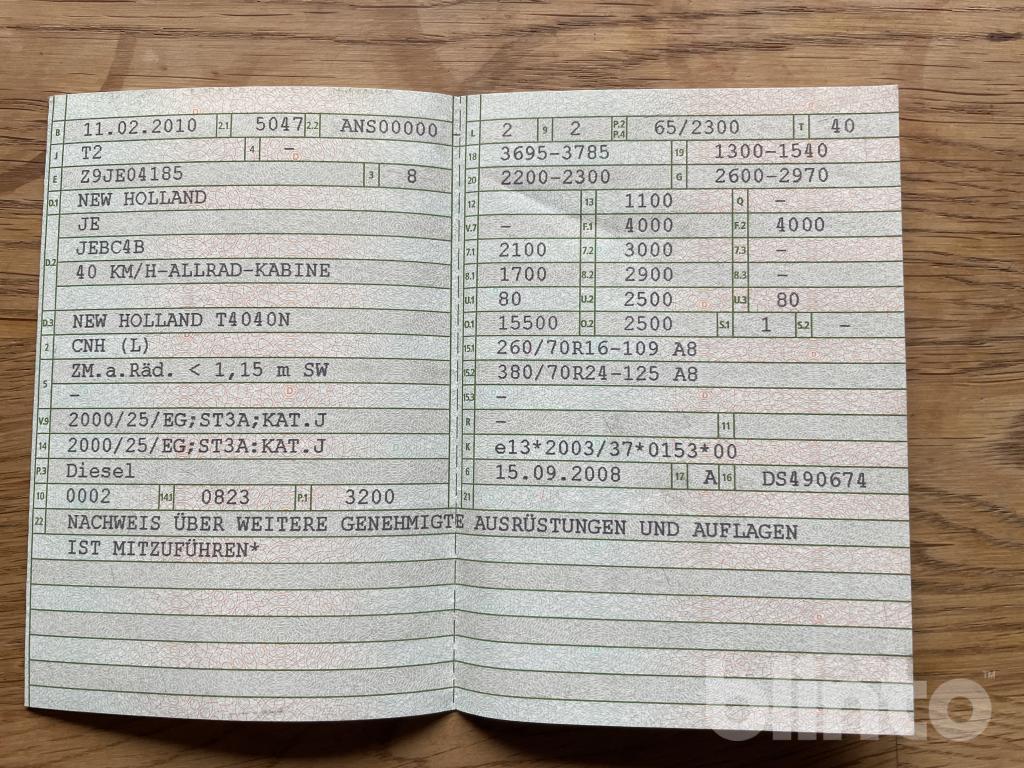 B 11.02.2010 2.1 5047 2.2 ANS00000
J T2 4 –
E Z9JE04185 3 8
D.1 NEW HOLLAND
JE
D.2 JEBC4B
40 KM/H-ALLRAD-KABINE
D.3 NEW HOLLAND T4040N
2 CNH (L)
5 ZM.a.Räd. < 1,15 m SW
–
V.9 2000/25/EG;ST3A;KAT.J
14 2000/25/EG;ST3A:KAT.J
P.3 Diesel
10 0002 14.1 0823 P.1 3200
L 2 9 2 P.2 P.4 65/2300 T 40
18 3695-3785 19 1300-1540
20 2200-2300 G 2600-2970
12 13 1100 Q –
V.7 – F.1 4000 F.2 4000
7.1 2100 7.2 3000 7.3 –
8.1 1700 8.2 2900 8.3 –
U.1 80 U.2 2500 U.3 80
O.1 15500 O.2 2500 S.1 1 S.2 –
15.1 260/70R16-109 A8
15.2 380/70R24-125 A8
15.3 –
R – 11
K e13*2003/37*0153*00
6 15.09.2008 17 A 16 DS490674
21
22 NACHWEIS ÜBER WEITERE GENEHMIGTE AUSRÜSTUNGEN UND AUFLAGEN
IST MITZUFÜHREN*
blinto™